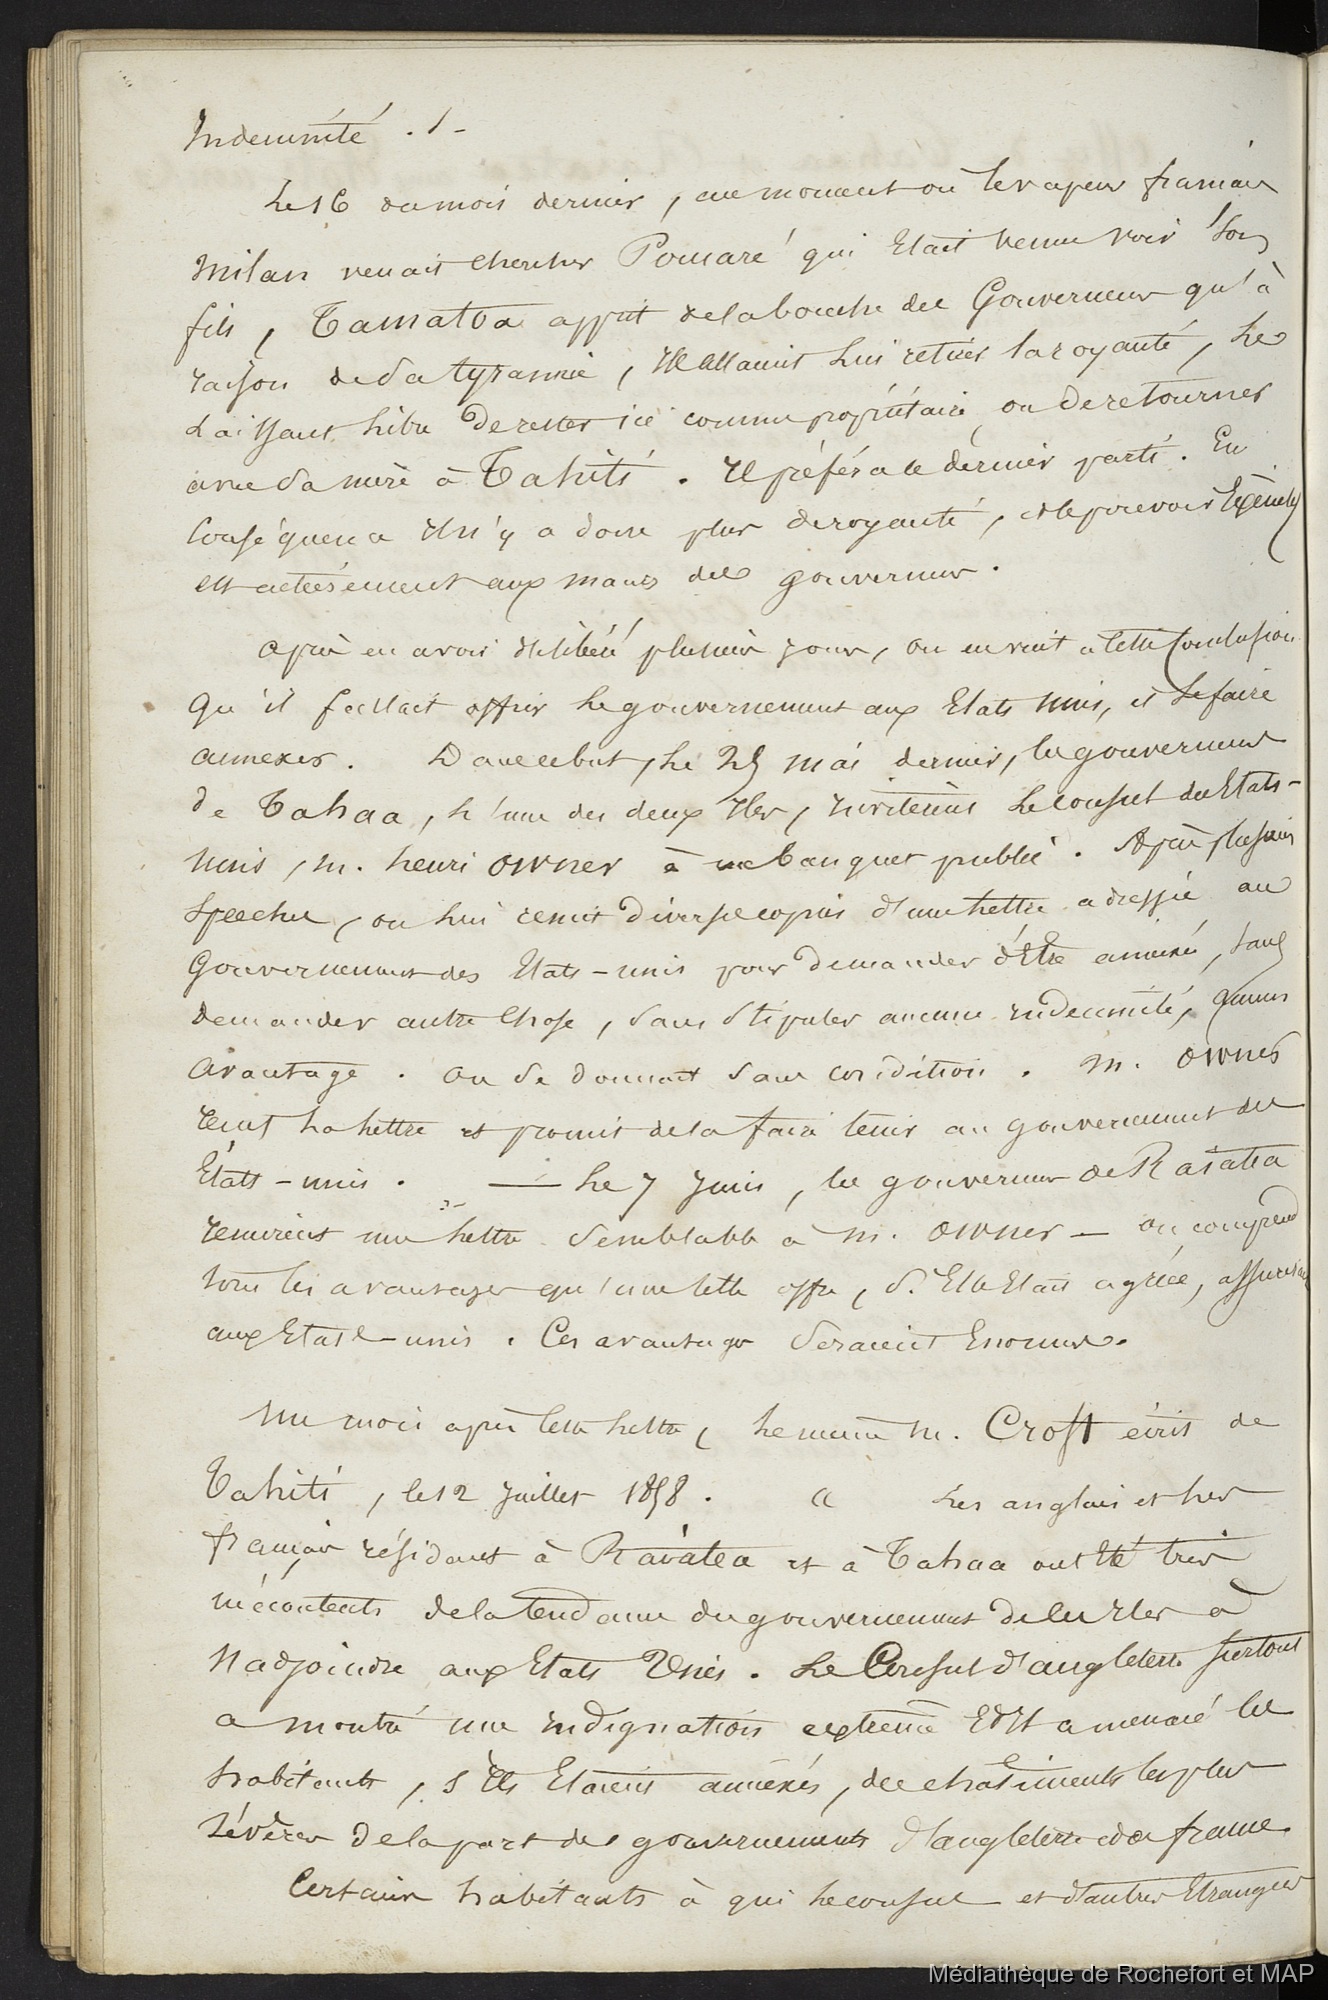 Indemnité . 1 -
Le 16 du mois dernier, au moment où le vapeur français
Milan venait chercher Pomaré qui était venue voir son
fils, Tamatoa apprit de la bouche des Gouverneurs qu'à
raison de sa tyrannie, ils allaient lui retirer la royauté, le
laissant libre de rester ici comme propriétaire ou de retourner
avec sa mère à Tahiti. Il préféra le dernier parti. En
conséquence il n'y a donc plus de royauté, et le pouvoir
est actuellement aux mains des gouverneurs.
Après en avoir délibéré plusieurs jours, on en vint à cette conclusion
qu'il fallait offrir le gouvernement aux Etats Unis, et se faire
annexer. Dans ce but, le 25 mai dernier, les gouverneurs
de Tahaa, l'une des deux Iles, invitèrent le consul des Etats-
unis, M. henri Owner à un banquet public. Après plusieurs
speeches, on lui remit diverses copies d'une lettre adressée au
Gouvernement des Etats-unis pour demander d'être annexé, sans
demander autre chose, sans stipuler aucune indemnité, aucun
avantage. On se donnait sans condition. M. Owner
reçut la lettre et promit de la faire tenir au gouvernement des
États-unis. — Le 7 Juin, les gouverneurs de Raiatea
remirent une lettre semblable à M. Owner — on comprend
tous les avantages qu'une telle offre, si Elle Etait agréée, assurerait
aux Etats-unis. Ces avantages seraient Enormes.
Un mois après cette lettre, le même M. Croft écrit de
Tahiti, le 12 Juillet 1858. « Les anglais et les
français résidant à Raiatea et à Tahaa ont été très
mécontents de la tendance du gouvernement de les Iles à
s'adjoindre aux Etats Unis. Le Consul d'angleterre surtout
a montré une indignation extrême Et il a menacé les
habitants, s'ils Etaient annexés, des chatiments les plus
sévères de la part des gouvernements d'angleterre et de france.
Certains habitants à qui le consul et d'autres Etrangers
Médiathèque de Rochefort et MAP